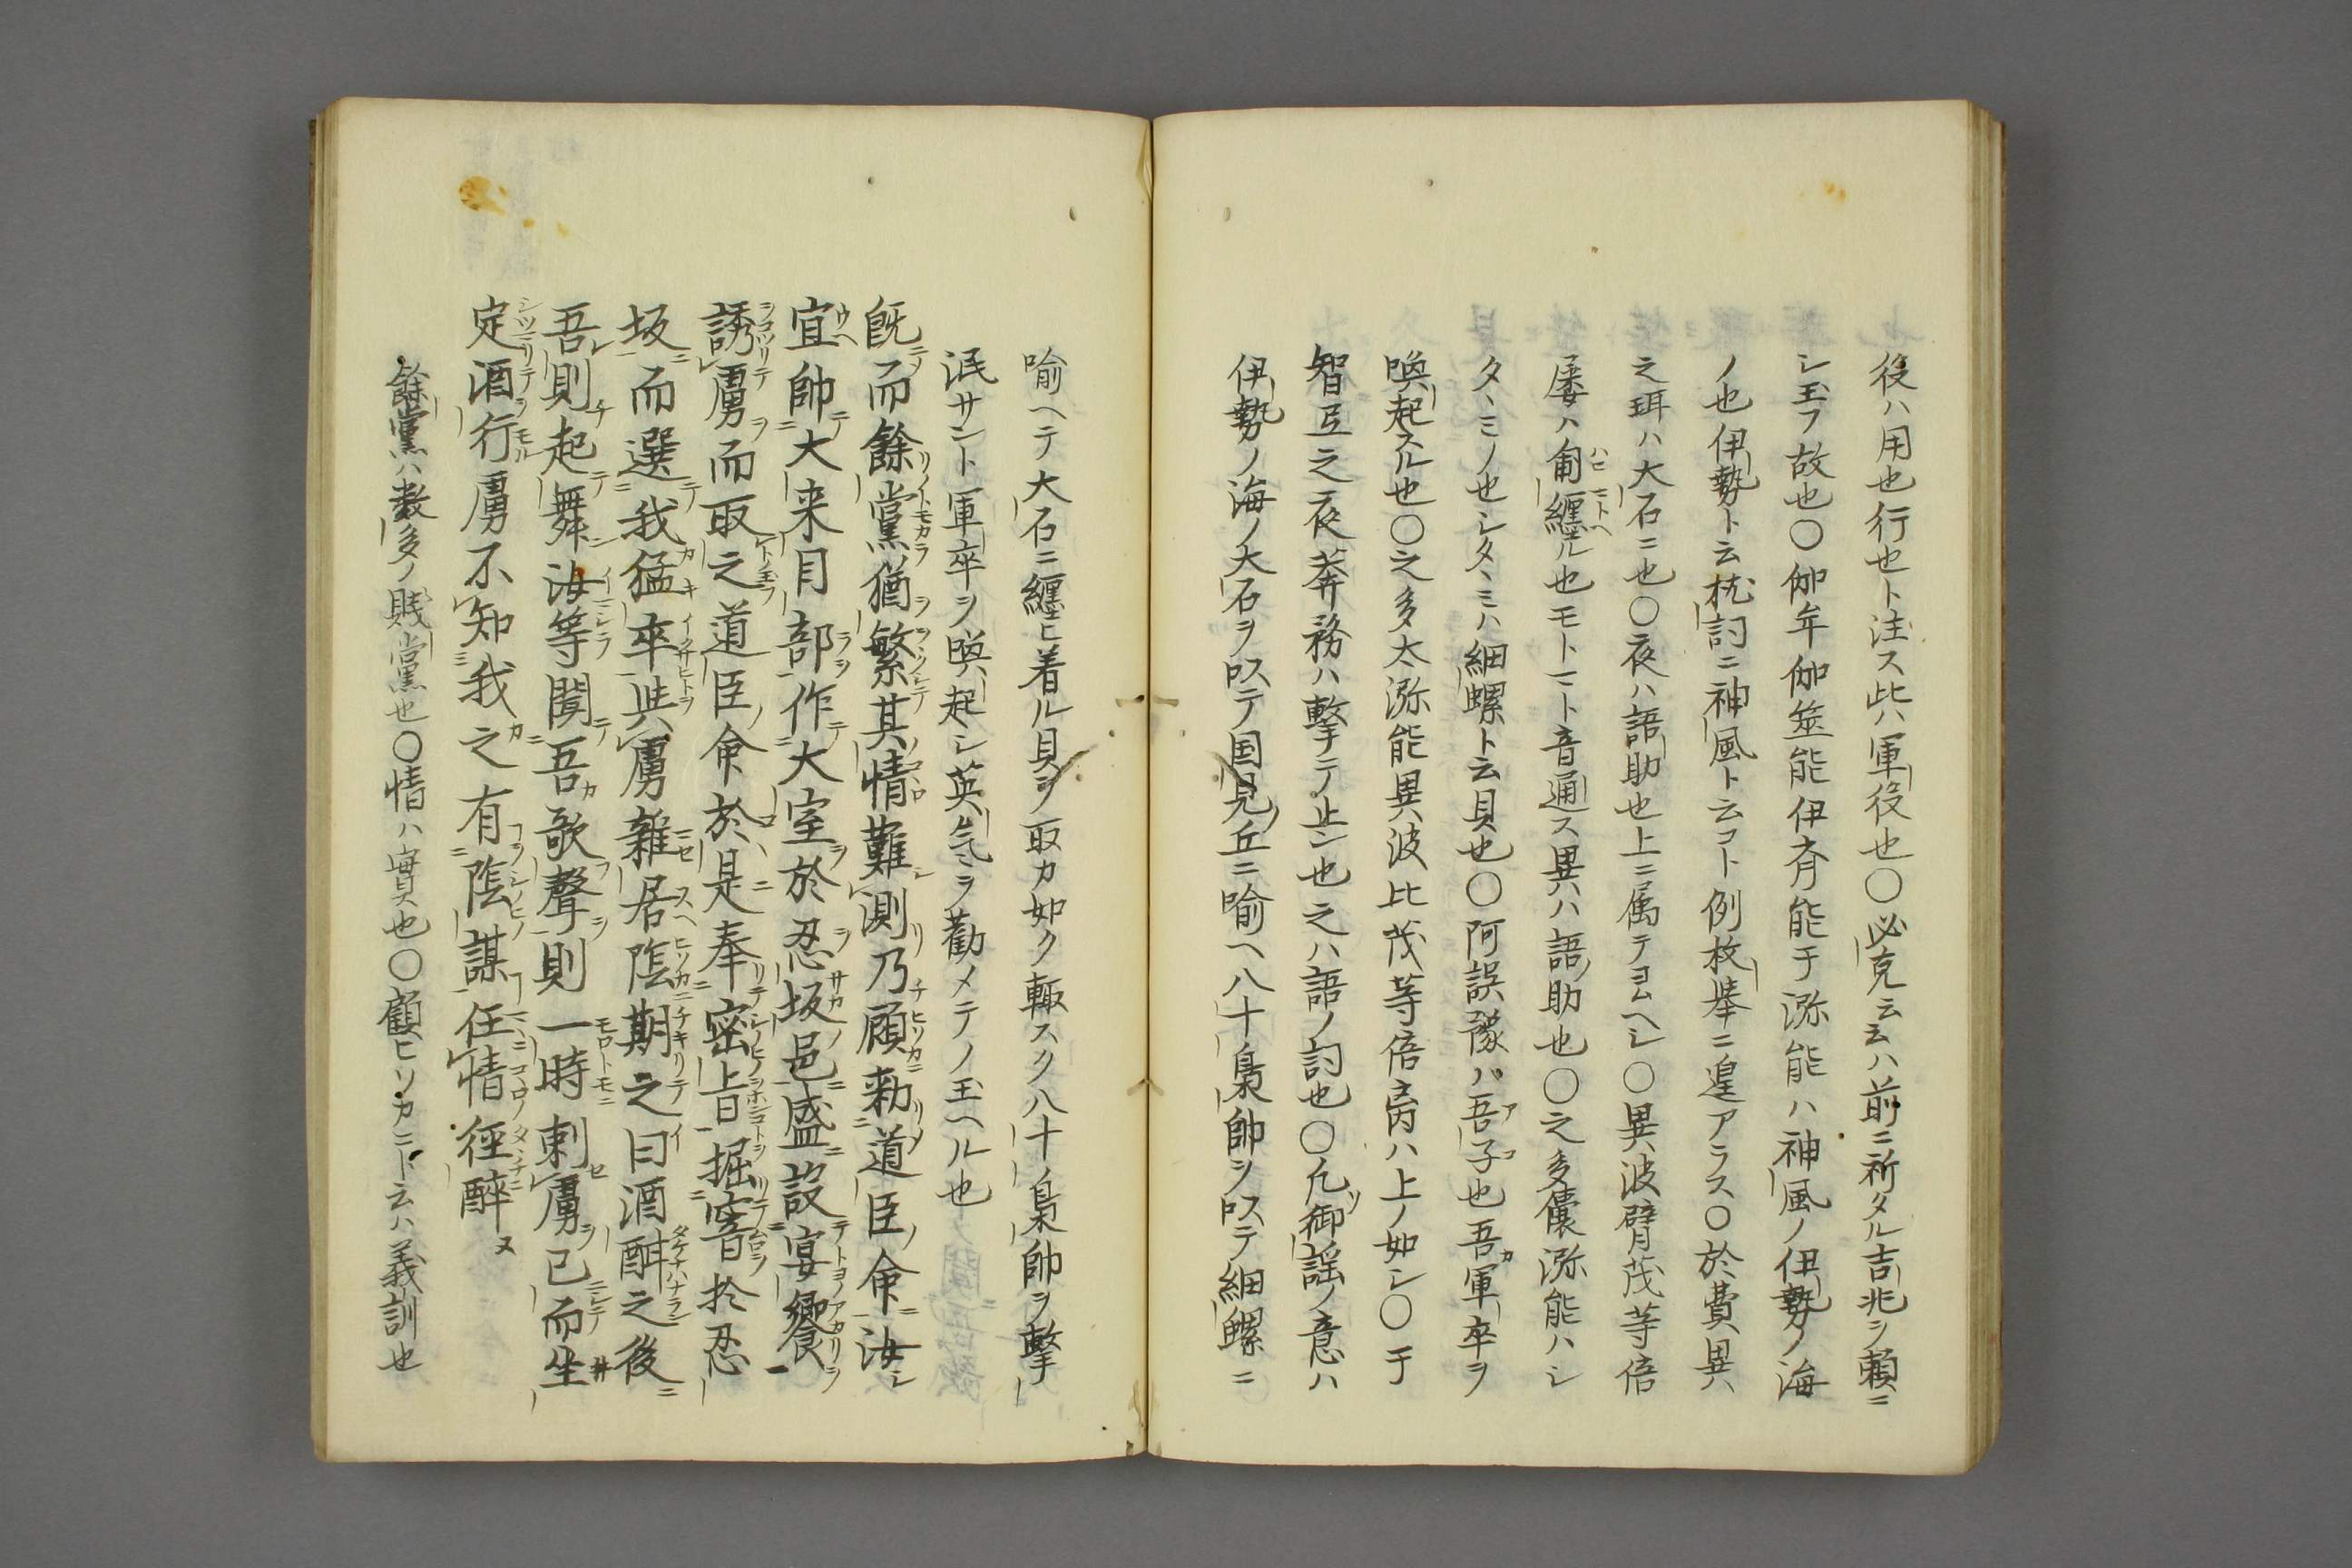 役ハ用也行也ト注ス此ハ軍役也〇必克云云ハ前ニ祈タル吉兆ヲ頼ニ
シ玉フ故也〇伽牟伽筮能伊斉能于瀰能ハ神風ノ伊勢ノ海
ノ也伊勢ト云枕詞ニ神風ト云コト例枚挙ニ遑アラス〇於費異
之珥ハ大石ニ也〇夜ハ語助也上ニ属テヨムヘシ〇異波臂茂等倍
屡ハ匍纏ル也モトニト音通ス異ハ語助也〇之多儾瀰能ハシ
タヽミノ也シタヽミハ細螺ト云貝也〇阿誤豫ハ吾子也吾軍卒ヲ
喚起スル也〇之多太瀰能異波比茂等倍离ハ上ノ如シ〇于
智弖之夜莽務ハ撃テ止ン也之ハ語ノ詞也〇凡御謡ノ意ハ
伊勢ノ海ノ大石ヲ以テ国見丘ニ喩ヘ八十梟帥ヲ以テ細螺ニ
喩ヘテ大石ニ纏ヒ着ル貝ヲ取カ如ク輙スク八十ノ梟帥ヲ撃
泯サント軍卒ヲ喚起シ英気ヲ勸メテノ玉ヘル也
既而餘黨猶繁其情難測乃顧勅道臣命汝
宜帥大来目部作大室於忍坂邑盛設宴饗
誘虜而取之道臣命於是奉密旨掘窨於忍
坂而選我猛卒與虜雑居陰期之曰酒酣之後
吾則起舞汝等聞吾歌聲則一時刺虜已而坐
定酒行虜不知我之有陰謀任情径醉
餘黨ハ数多ノ賊黨也〇情ハ實也〇顧ヒソカニト云ハ義訓也